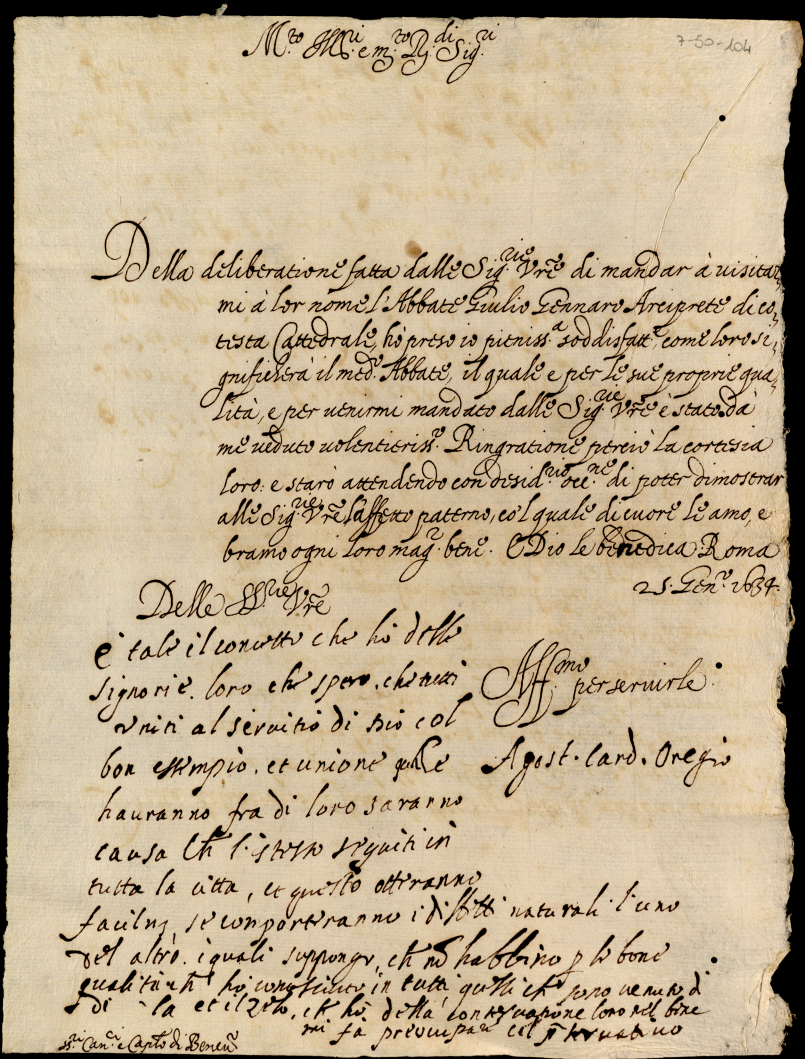 7-50-104
M.to Ill.ri e m.to R.di Sig.ri
Della deliberatione fatta dalle Sig.rie Vre di mandar à uisitar-
mi à lor nome l'Abbate Giulio Gennaro Arciprete di co-
testa Cattedrale, hò preso io pieniss.a soddisfatt.e, come loro si-
gnificherà il med.o Abbate, il quale e per le sue proprie qua-
lità, e per uenirmi mandato dalle Sig.rie Vre è stato dà
me ueduto uolentieriss.o Ringratione perciò la cortesia
loro: e starò attendendo con desid.rio occ.ne di poter dimostrar
alle Sig.rie Vre l'affetto paterno, co'l quale di cuore le amo, e
bramo ogni loro mag.r bene. E Dio le benedica. Roma
25. Gen.o 1634.
Delle SS.rie Vre
è tale il concetto che hò delle
signorie loro che spero, che tutti
uniti al seruitio di Dio col
bon essempio, et unione che
hauranno fra di loro saranno
causa ch l'istesso seguiti in
tutta la città, et questo otteranno
Aff.mo per seruirle
Agost. Card. Oregio
facilm, se comporteranno i difetti naturali l'uno
del altro, i quali suppongo, ch nõ habbino p le bone
qualità ch hò conosciuto in tutti quelli ch sono uenuti di
la et il zelo, ch hò della conseruatione loro nel bene
mi fa preoccupare col
SS.ri Can.ci e Cap.lo di Beneu.to